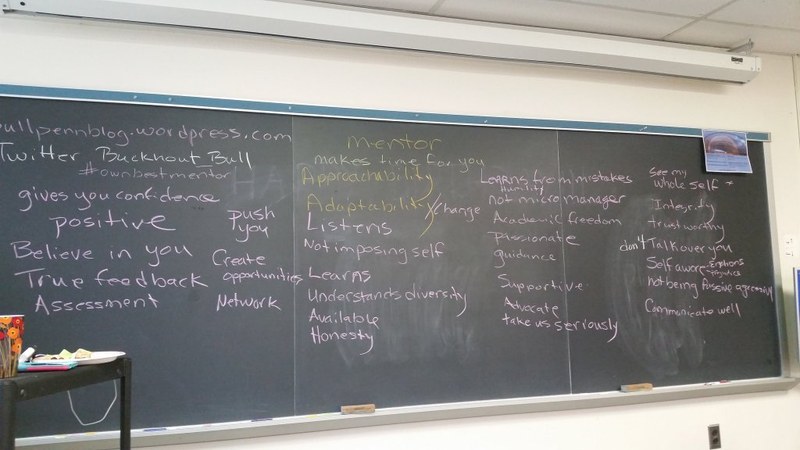 ullpennblog.wordpress.com
Twitter Bucknout_Bull
#ownbestmentor
gives you confidence
positive
Believe in you
True feedback
Assessment
push
you
Create
opportunities
Network
mentor
makes time for you
Approachability
Adaptability
change
Listens
Not imposing self
Learns
Understands diversity
Available
Honesty
Learns from mistakes
humility
not micro manager
Academic freedom
Passionate
guidance
Supportive
Advocate
take us seriously
see my
whole self
Integrity
trustworthy
don't Talk over you
Self aware
not being passive agressive
Communicate well